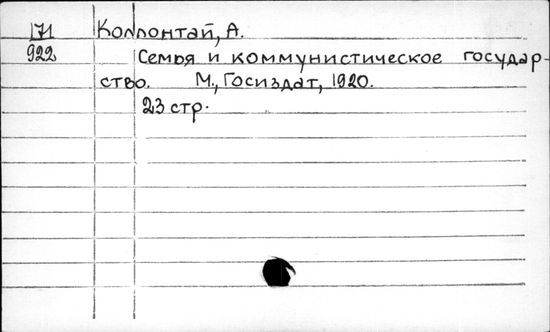 171 Коллонтай, А.
922 Семья и коммунистическое государ-
ство. М., Госиздат, 1920.
23 стр.